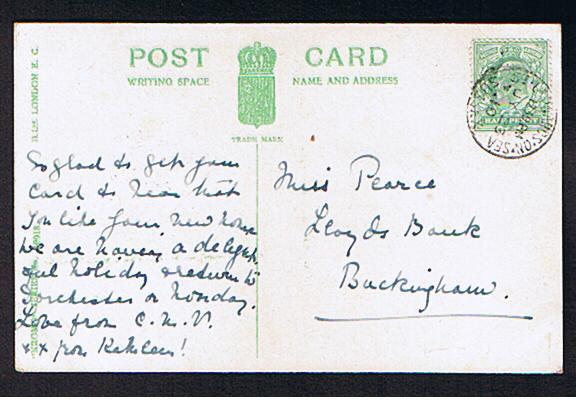 POST CARD
WRITING SPACE
NAME AND ADDRESS
TRADE MARK
LONDON E. C.
HALFPENNY
ON·SEA
So glad to get your
Card & hear that
you like your new home
We are having a delight
ful holiday & return to
Dorchester on Monday.
Love from C. M. V.
x x from Kathleen!
Miss Pearce
Lloyds Bank
Buckingham.